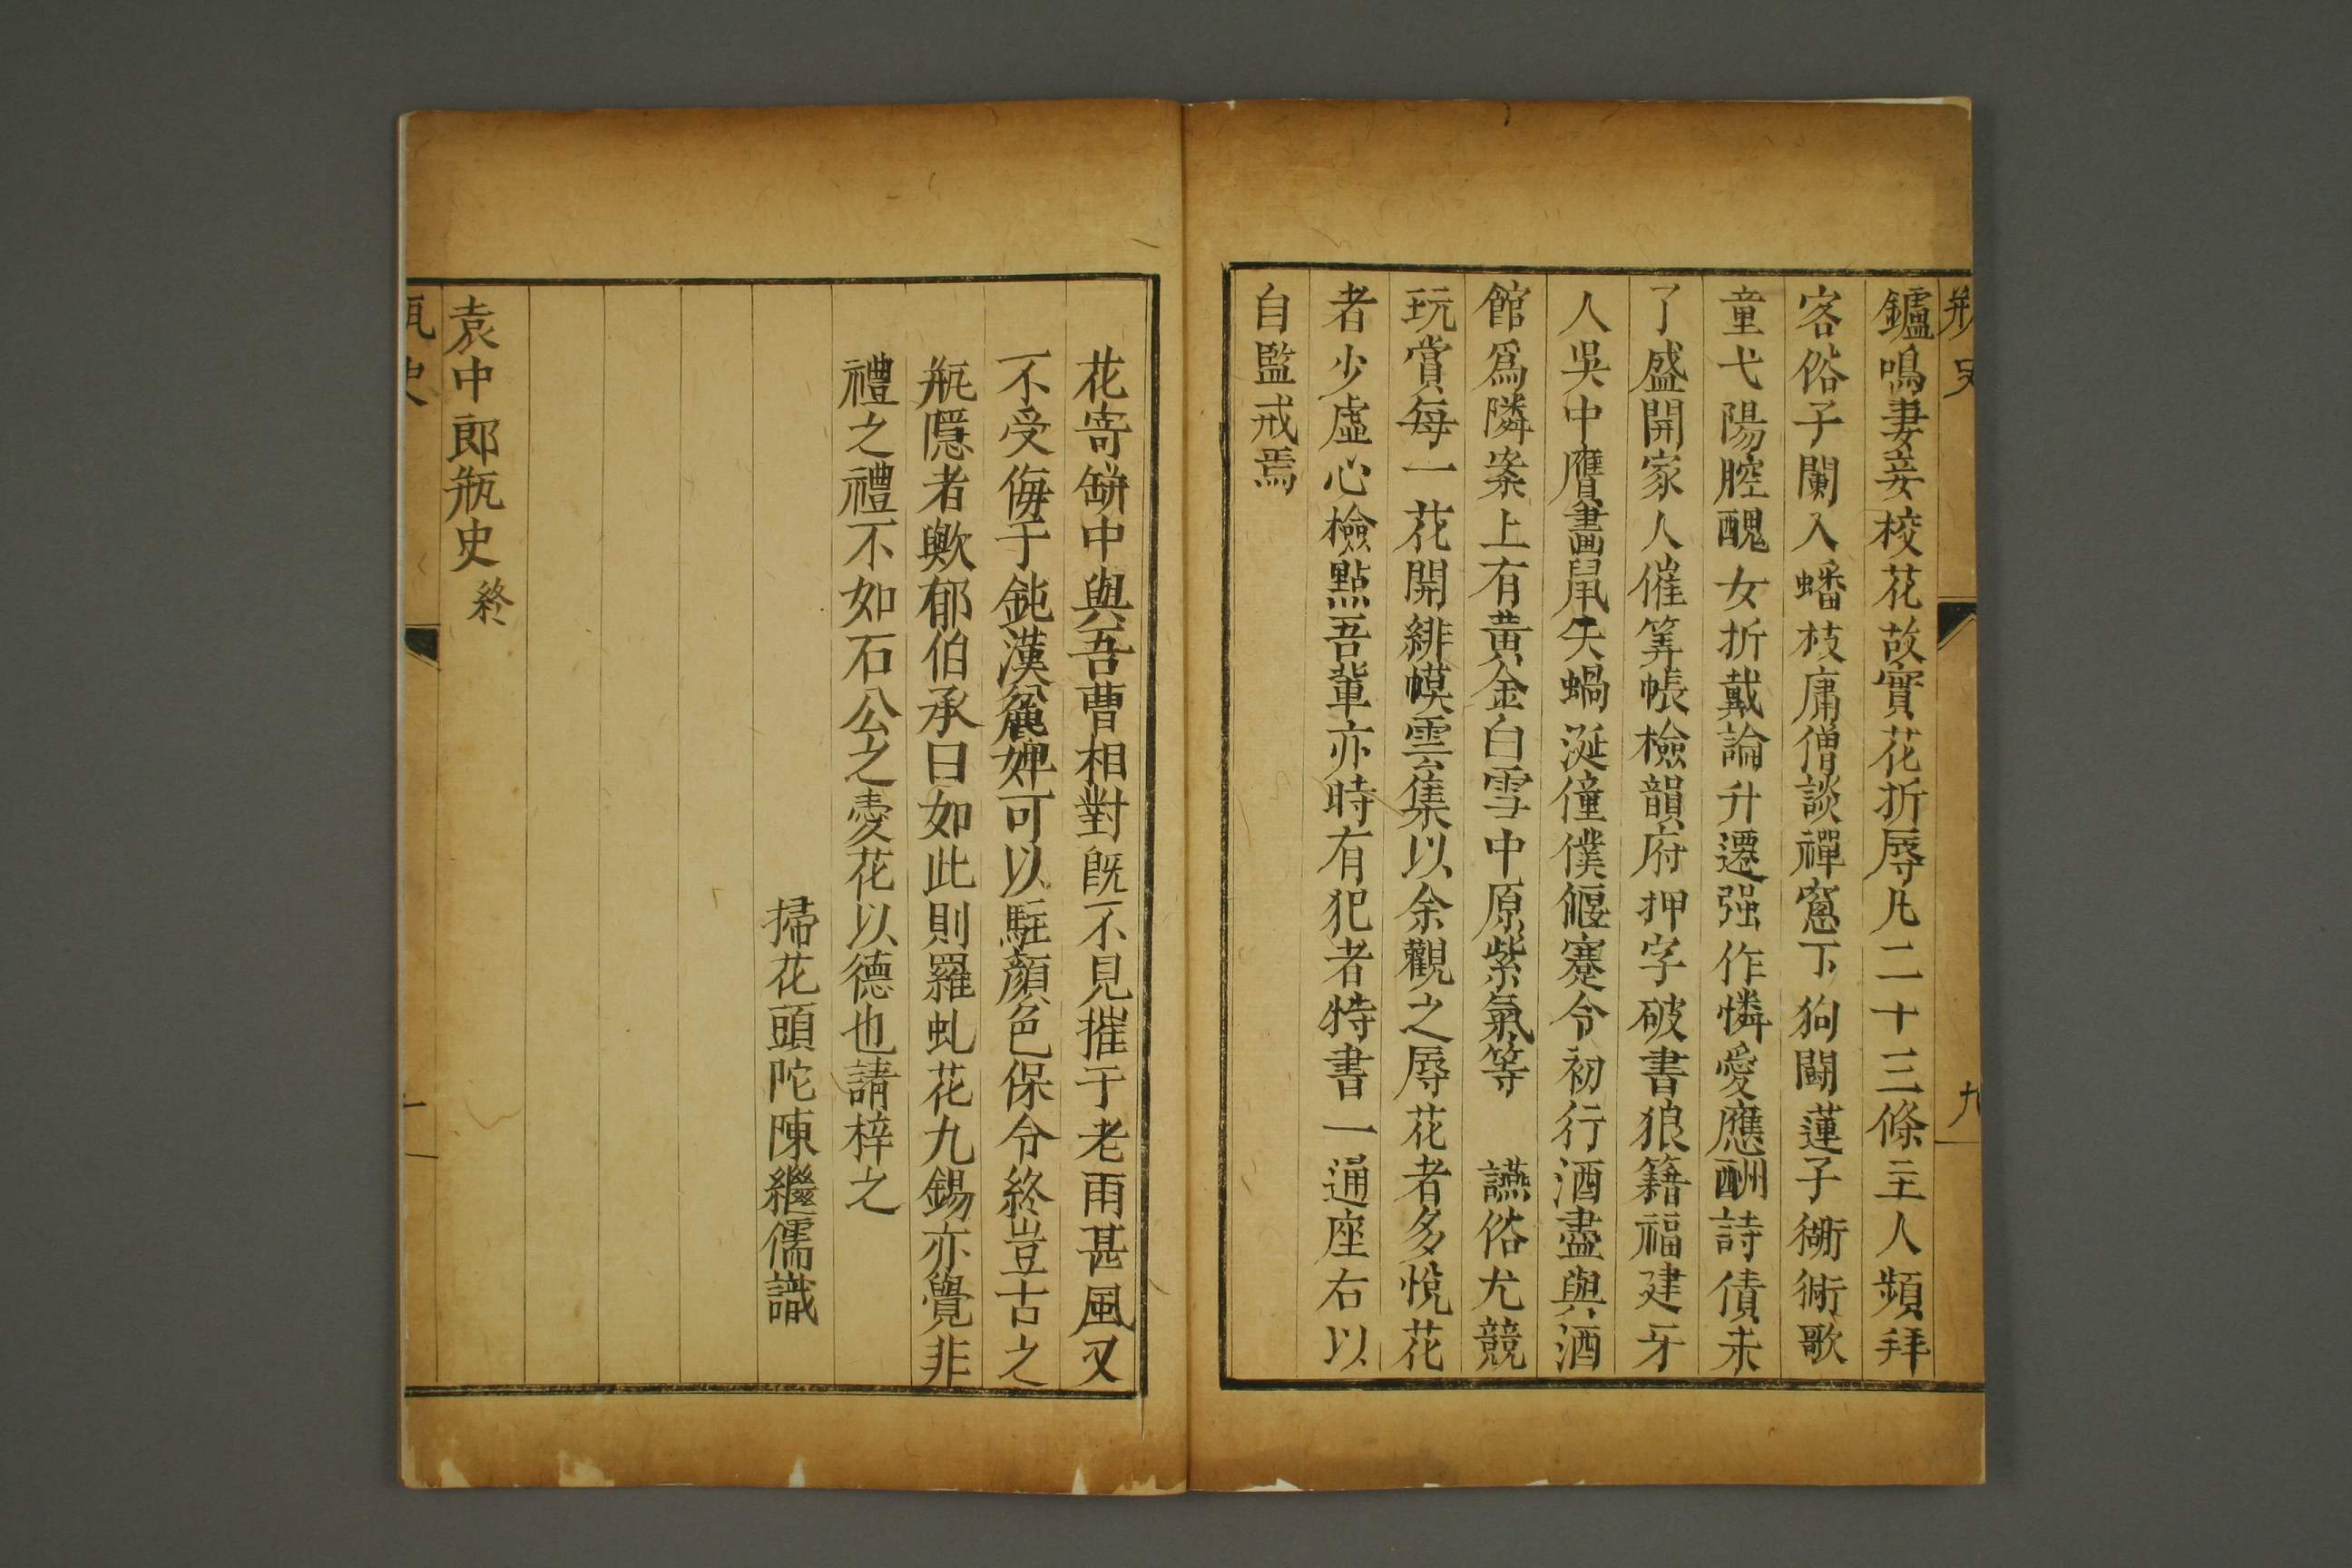 鑪鳴妻妾校花故實花折辱凡二十三條主人頻拜
客俗子闌入蟠枝庸僧談禪窻下狗鬬蓮子衚衕歌
童弋陽腔醜女折戴論升遷强作憐愛應酬詩債未
了盛開家人催筭帳檢韻府押字破書狼籍福建牙
人吳中贋畫鼠矢蝸涎僮僕偃蹇令初行酒盡與酒
館爲隣案上有黄金白雪中原紫氣等 讌俗尤競
玩賞每一花開緋幙雲集以余觀之辱花者多悅花
者少虛心檢點吾輩亦時有犯者特書一通座右以
自監戒焉
花寄缾中與吾曹相對旣不見摧于老雨甚風又
不受侮于鈍漢麄婢可以駐顏色保令終豈古之
瓶隱者歟郁伯承曰如此則羅虬花九錫亦覺非
禮之禮不如石公之愛花以德也請梓之
掃花頭陀陳繼儒識
袁中郎瓶史 終
瓶史